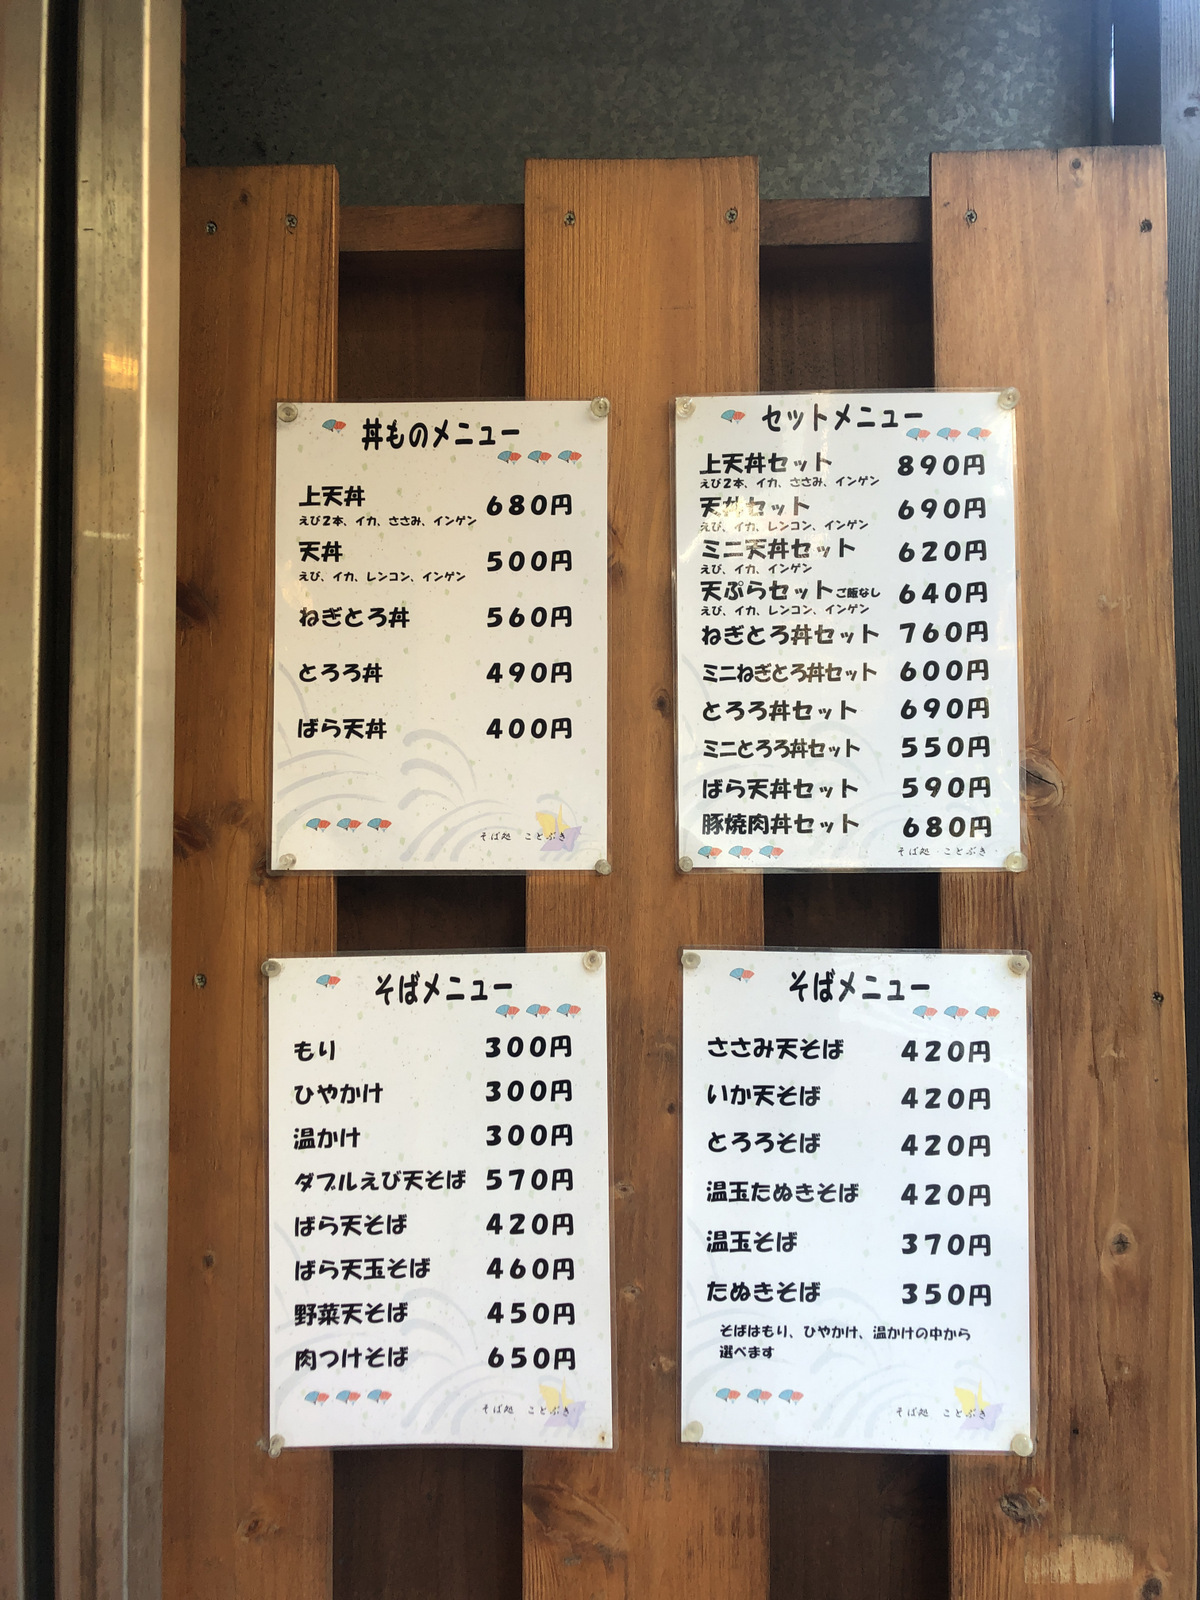 丼ものメニュー
上天丼 680円
えび2本、イカ、ささみ、インゲン
天丼 500円
えび、イカ、レンコン、インゲン
ねぎとろ丼 560円
とろろ丼 490円
ばら天丼 400円
そば処 ことぶき
セットメニュー
上天丼セット 890円
えび2本、イカ、ささみ、インゲン
天丼セット 690円
えび、イカ、レンコン、インゲン
ミニ天丼セット 620円
えび、イカ、インゲン
天ぷらセットご飯なし 640円
えび、イカ、レンコン、インゲン
ねぎとろ丼セット 760円
ミニねぎとろ丼セット 600円
とろろ丼セット 690円
ミニとろろ丼セット 550円
ばら天丼セット 590円
豚焼肉丼セット 680円
そば処 ことぶき
そばメニュー
もり 300円
ひやかけ 300円
温かけ 300円
ダブルえび天そば 570円
ばら天そば 420円
ばら天玉そば 460円
野菜天そば 450円
肉つけそば 650円
そば処 ことぶき
そばメニュー
ささみ天そば 420円
いか天そば 420円
とろろそば 420円
温玉たぬきそば 420円
温玉そば 370円
たぬきそば 350円
そばはもり、ひやかけ、温かけの中から
選べます
そば処 ことぶき